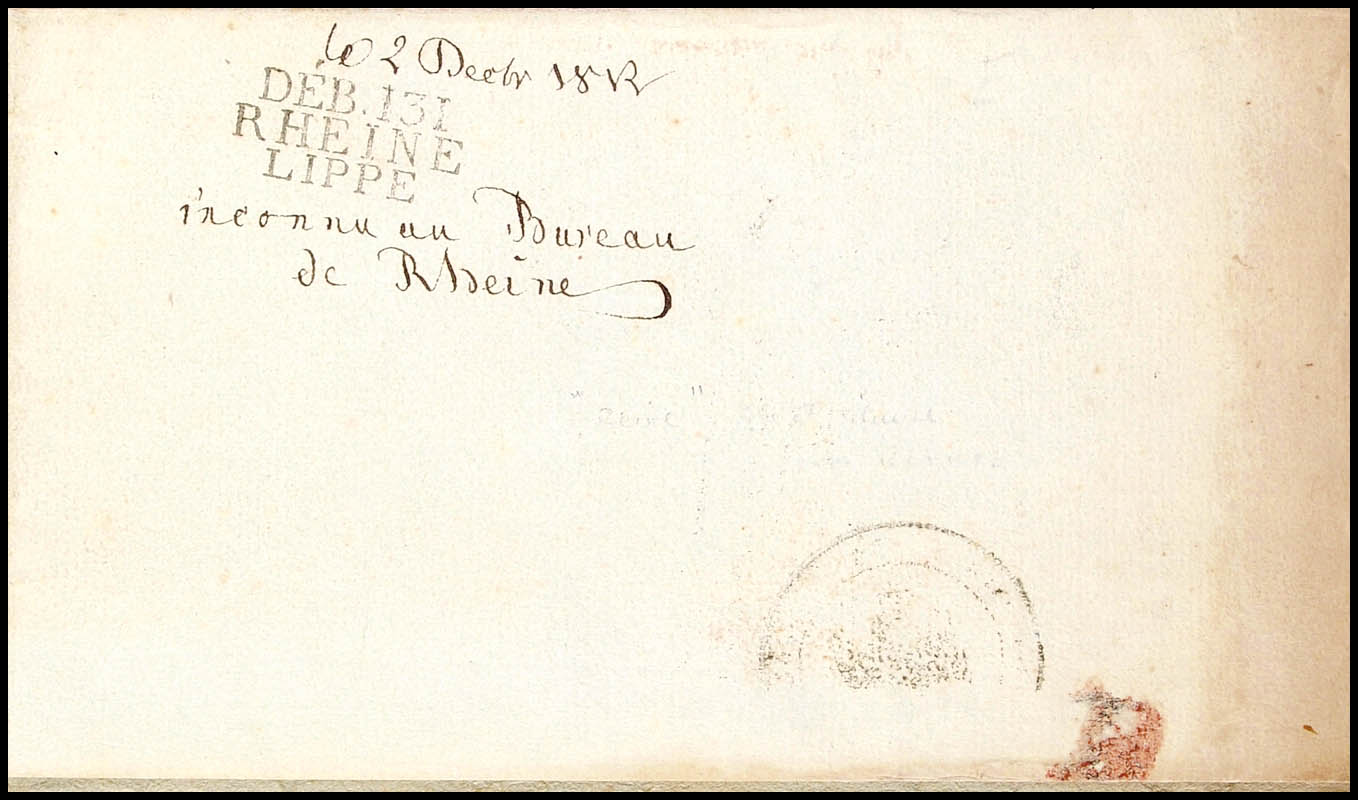 le 2 Decbr 1812
DÉB. 131
RHEINE
LIPPE
inconnu au Bureau
de Rheine